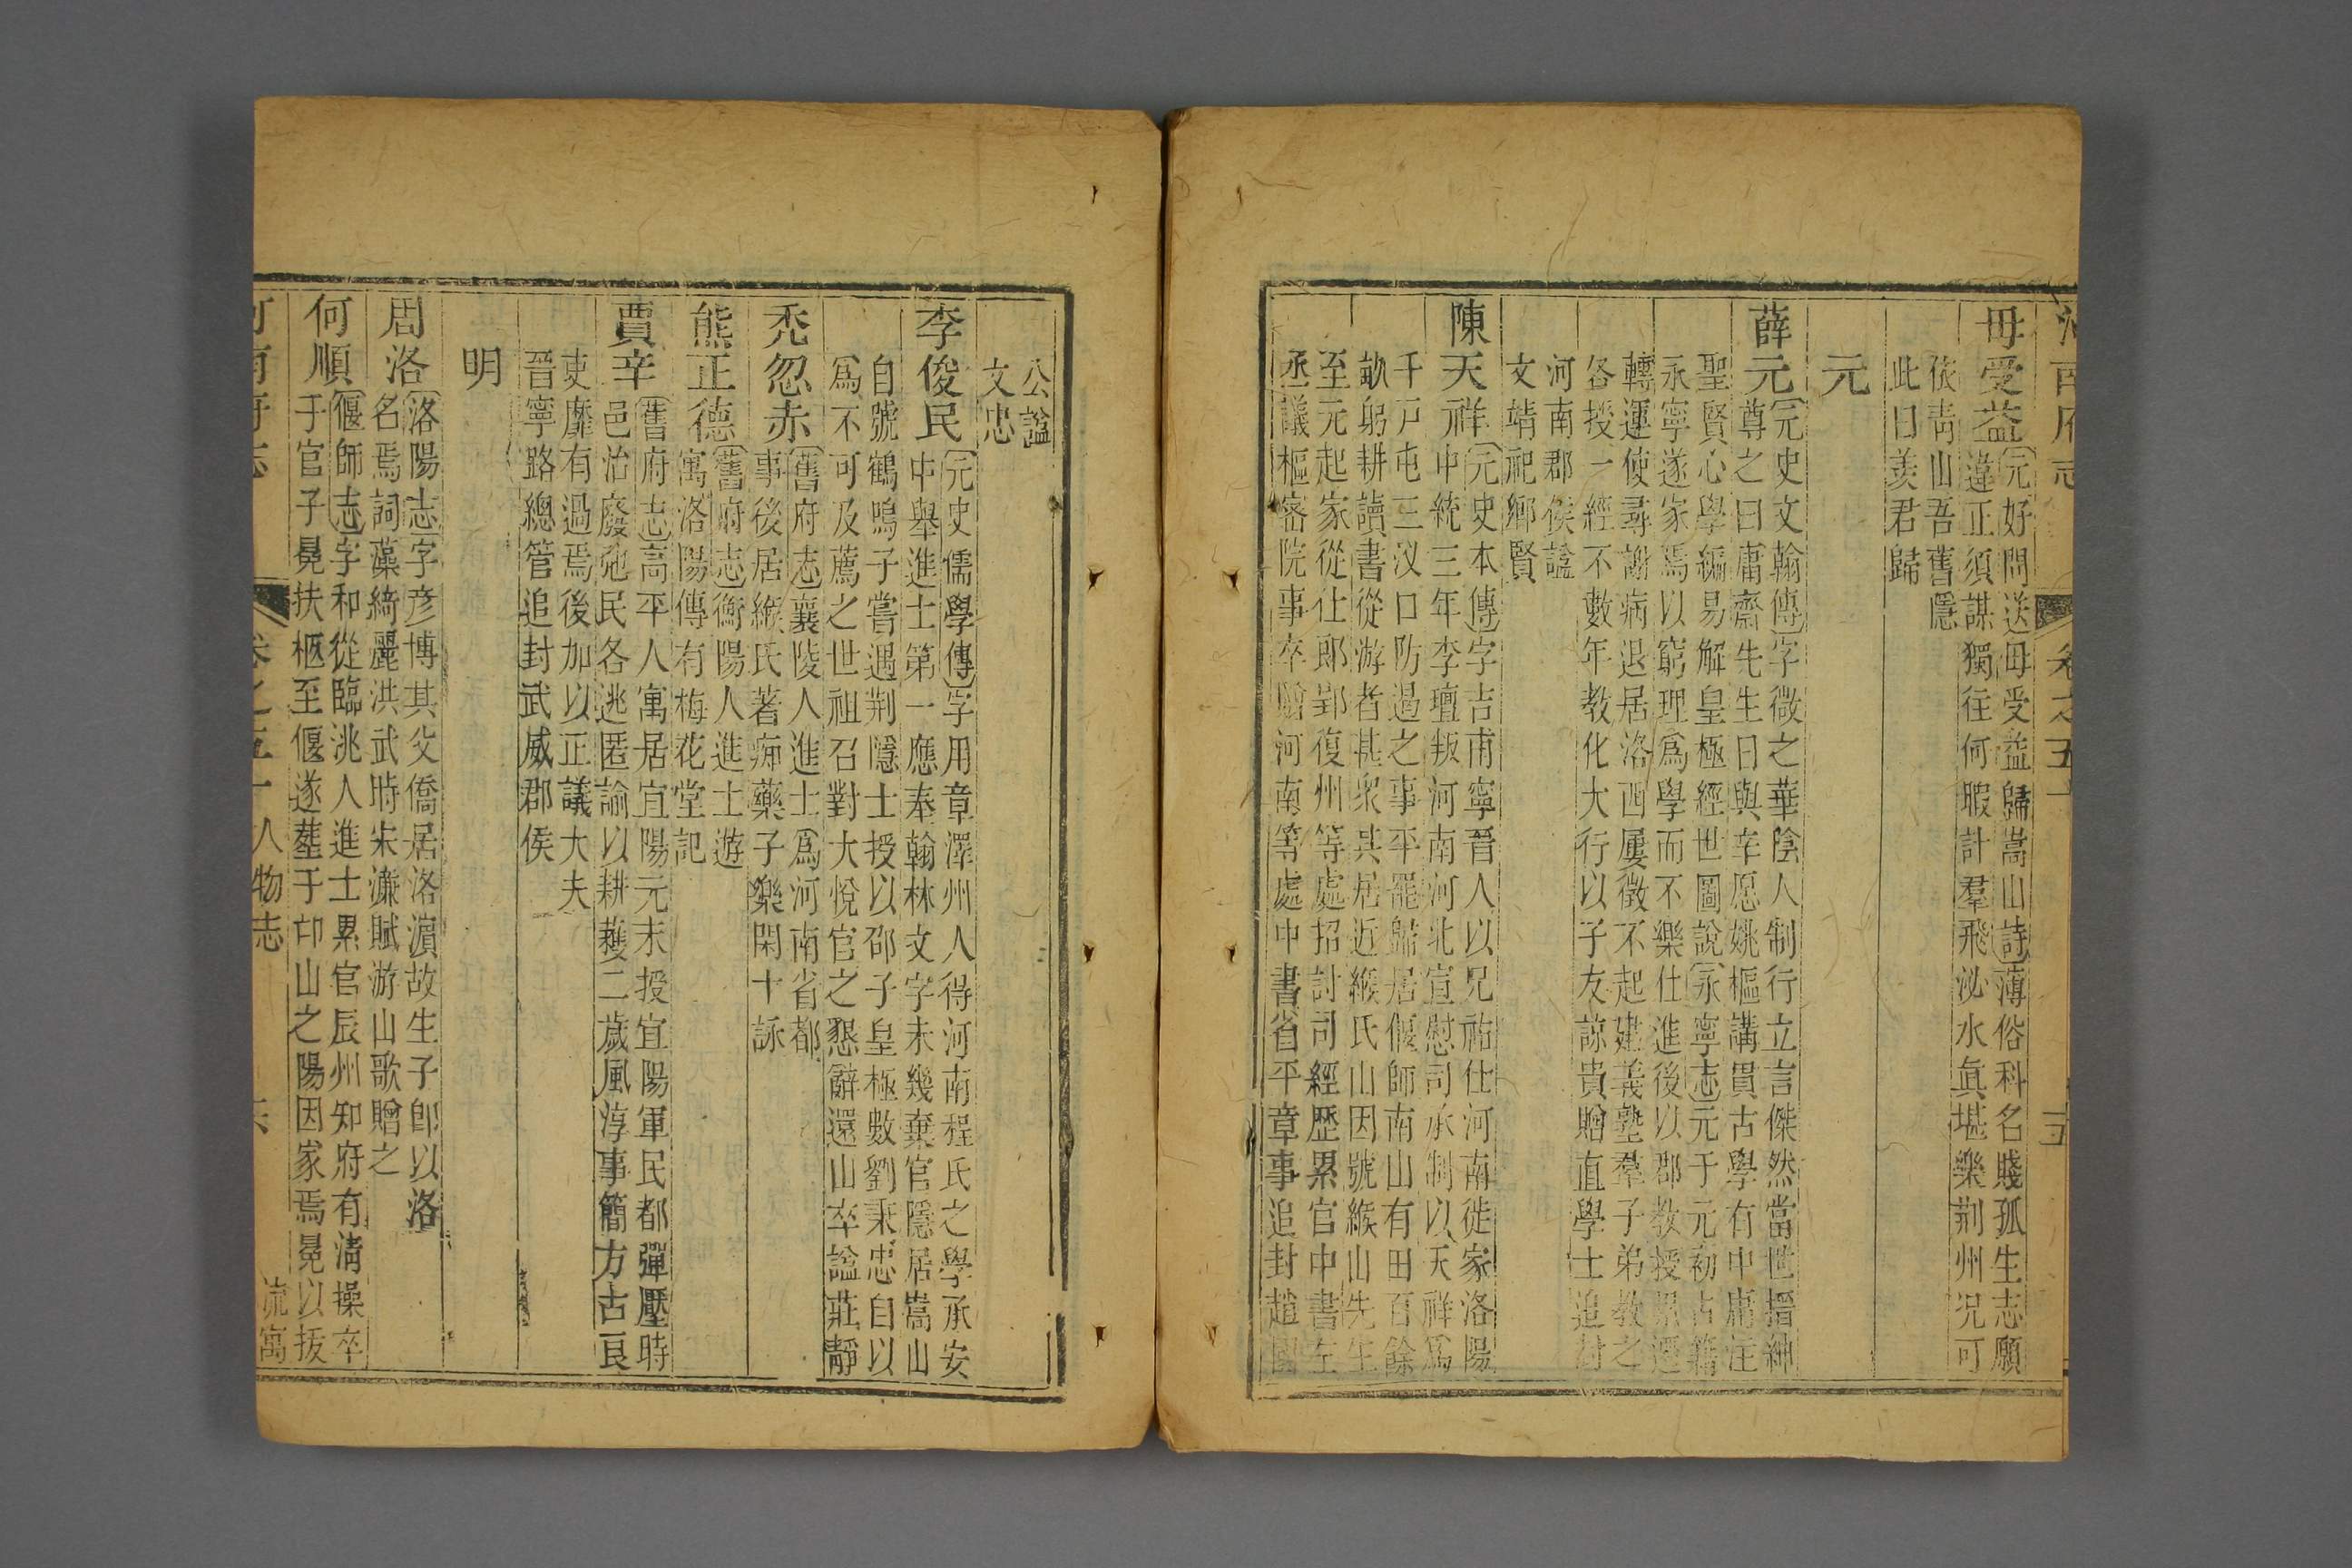 河南府志 卷之五十 五
毋受益〔元好問送毋受益歸嵩山詩〕薄俗科名賤孤生志願
違正須謀獨往何暇計羣飛泌水眞堪樂荆州况可
依靑山吾舊隱
此日羨君歸
元
薛元〔元史文翰傳〕字微之華陰人制行立言傑然當世搢紳
尊之曰庸齋先生日與辛愿姚樞講貫古學有中庸注
聖賢心學編易解皇極經世圖說〔永寧志〕元于元初占籍
永寧遂家焉以窮理爲學而不樂仕進後以郡教授累遷
轉運使尋謝病退居洛西屢徵不起建義塾羣子弟教之
各授一經不數年教化大行以子友諒貴贈直學士追封
河南郡侯謚
文靖祀鄉賢
陳天祥〔元史本傳〕字吉甫寧晉人以兄祐仕河南徙家洛陽
中統三年李璮叛河南河北宣慰司承制以天祥爲
千戸屯三汊口防遏之事平罷歸居偃師南山有田百餘
畝躬耕讀書從游者甚衆其居近緱氏山因號緱山先生
至元起家從仕郎郢復州等處招討司經歷累官中書左
丞議樞密院事卒贈河南等處中書省平章事追封趙國
公謚
文忠
李俊民〔元史儒學傳〕字用章澤州人得河南程氏之學承安
中舉進士第一應奉翰林文字未幾棄官隱居嵩山
自號鶴鳴子嘗遇荆隱士授以邵子皇極數劉秉忠自以
爲不可及薦之世祖召對大悅官之懇辭還山卒謚莊靜
禿忽赤〔舊府志〕襄陵人進士爲河南省都
事後居緱氏著痴藥子樂閑十詠
熊正德〔舊府志〕衡陽人進士遊
寓洛陽傳有梅花堂記
賈辛〔舊府志〕高平人寓居宜陽元末授宜陽軍民都彈壓時
邑治廢弛民各逃匿諭以耕耨二歲風淳事簡方古良
吏靡有過焉後加以正議大夫
晉寧路總管追封武威郡侯
明
周洛〔洛陽志〕字彥博其父僑居洛濵故生子卽以洛
名焉詞藻綺麗洪武時宋濂賦游山歌贈之
何順〔偃師志〕字和從臨洮人進士累官辰州知府有淸操卒
于官子晃扶柩至偃遂塟于邙山之陽因家焉晃以抜
河南府志 卷之五十 人物志 流寓 六